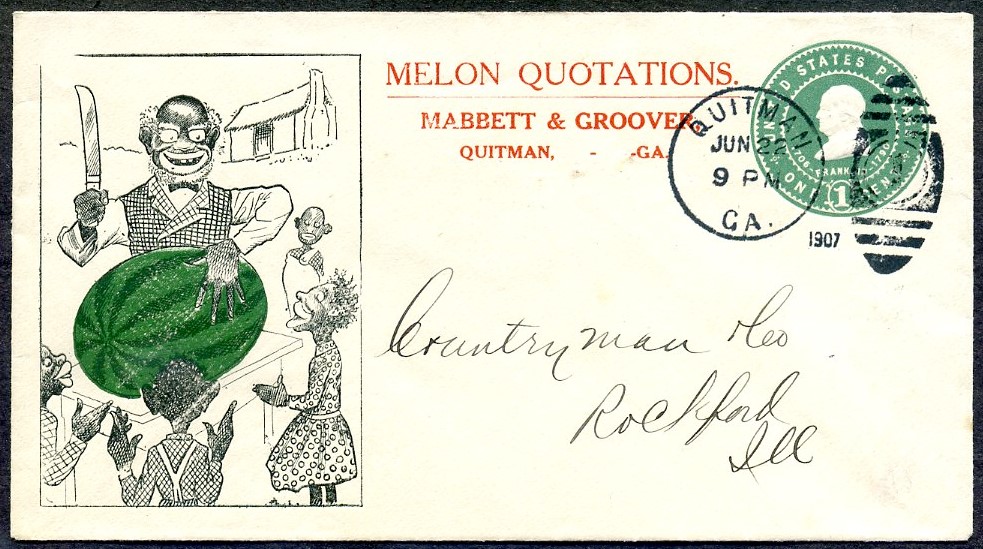 MELON QUOTATIONS.
MABBETT & GROOVER,
QUITMAN, - -GA.
QUITMAN
JUN 22
9 PM
GA.
1907
UNITED STATES POSTAGE
1706-FRANKLIN-1790
ONE 1 CENT
Countryman & Co
Rockford
Ill